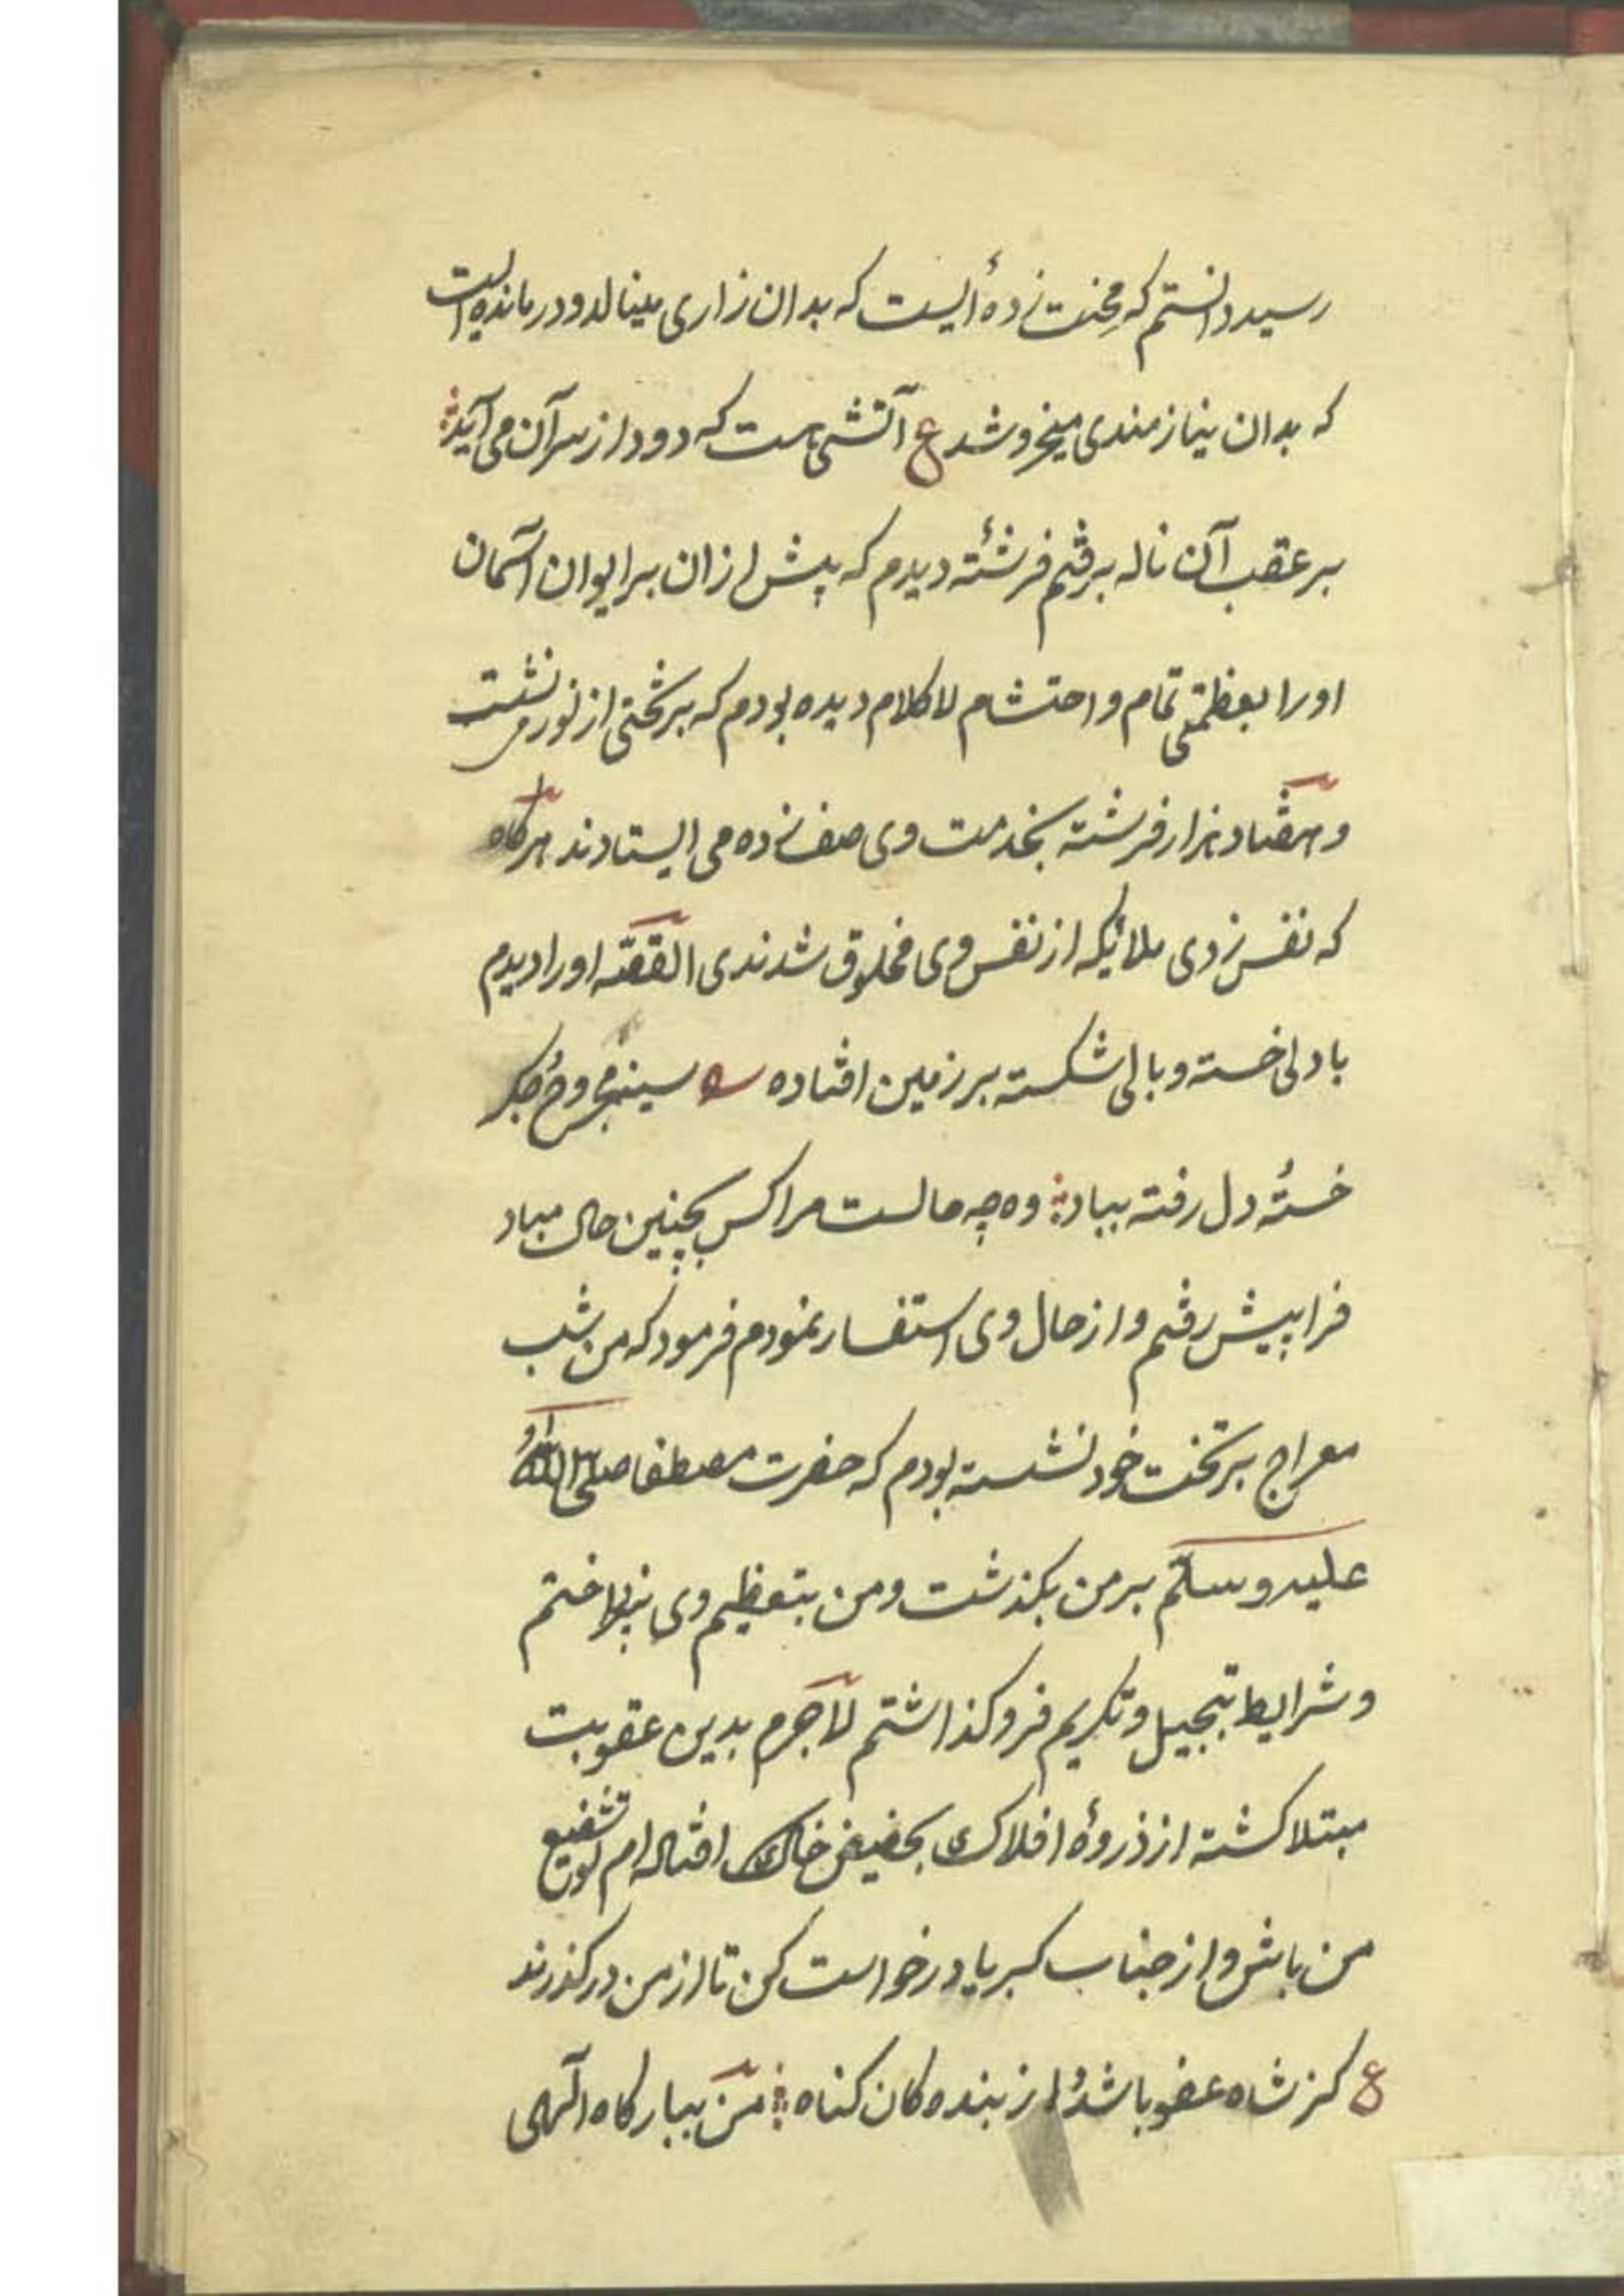 رسید دانستم که محنت زدهٔ ایست که بدان زاری مینالد و درمانده است
که بدان نیازمندی میخروشد ع آتشی هست که دود از سر آن می آید
بر عقب آن ناله برفتم فرشتهٔ دیدم که پیش ازان بر ایوان آسمان
اورا بعظمتی تمام و احتشام لاکلام دیده بودم که بر تختی از نور می نشست
و هفتاد هزار فرشته بخدمت وی صف زده می ایستادند هرگاه
که نفس زدی ملائیکه از نفس وی مخلوق شدندی القصّه اورا دیدم
با دلی خسته و بالی شکسته بر زمین افتاده سینه مجروح جگر
خستهٔ دل رفته بباد وه چه حالست مرا کس بچنین حال مباد
فرا پیش رفتم و از حال وی استفسار نمودم فرمود که من شب
معراج بر تخت خود نشسته بودم که حضرت مصطفا صلی الله
علیه وسلّم بر من بکذشت و من بتعظیم وی نپرداختم
و شرایط تبجیل و تکریم فرو کذاشتم لاجرم بدین عقوبت
مبتلا کشته از ذروهٔ افلاک بحضیض خاک افتاده ام تو شفیع
من باش و از جناب کبریا درخواست کن تا از من درکذرند
ع کز شاه عفو باشدُ از بنده کان کناه من ببارکاه الهی